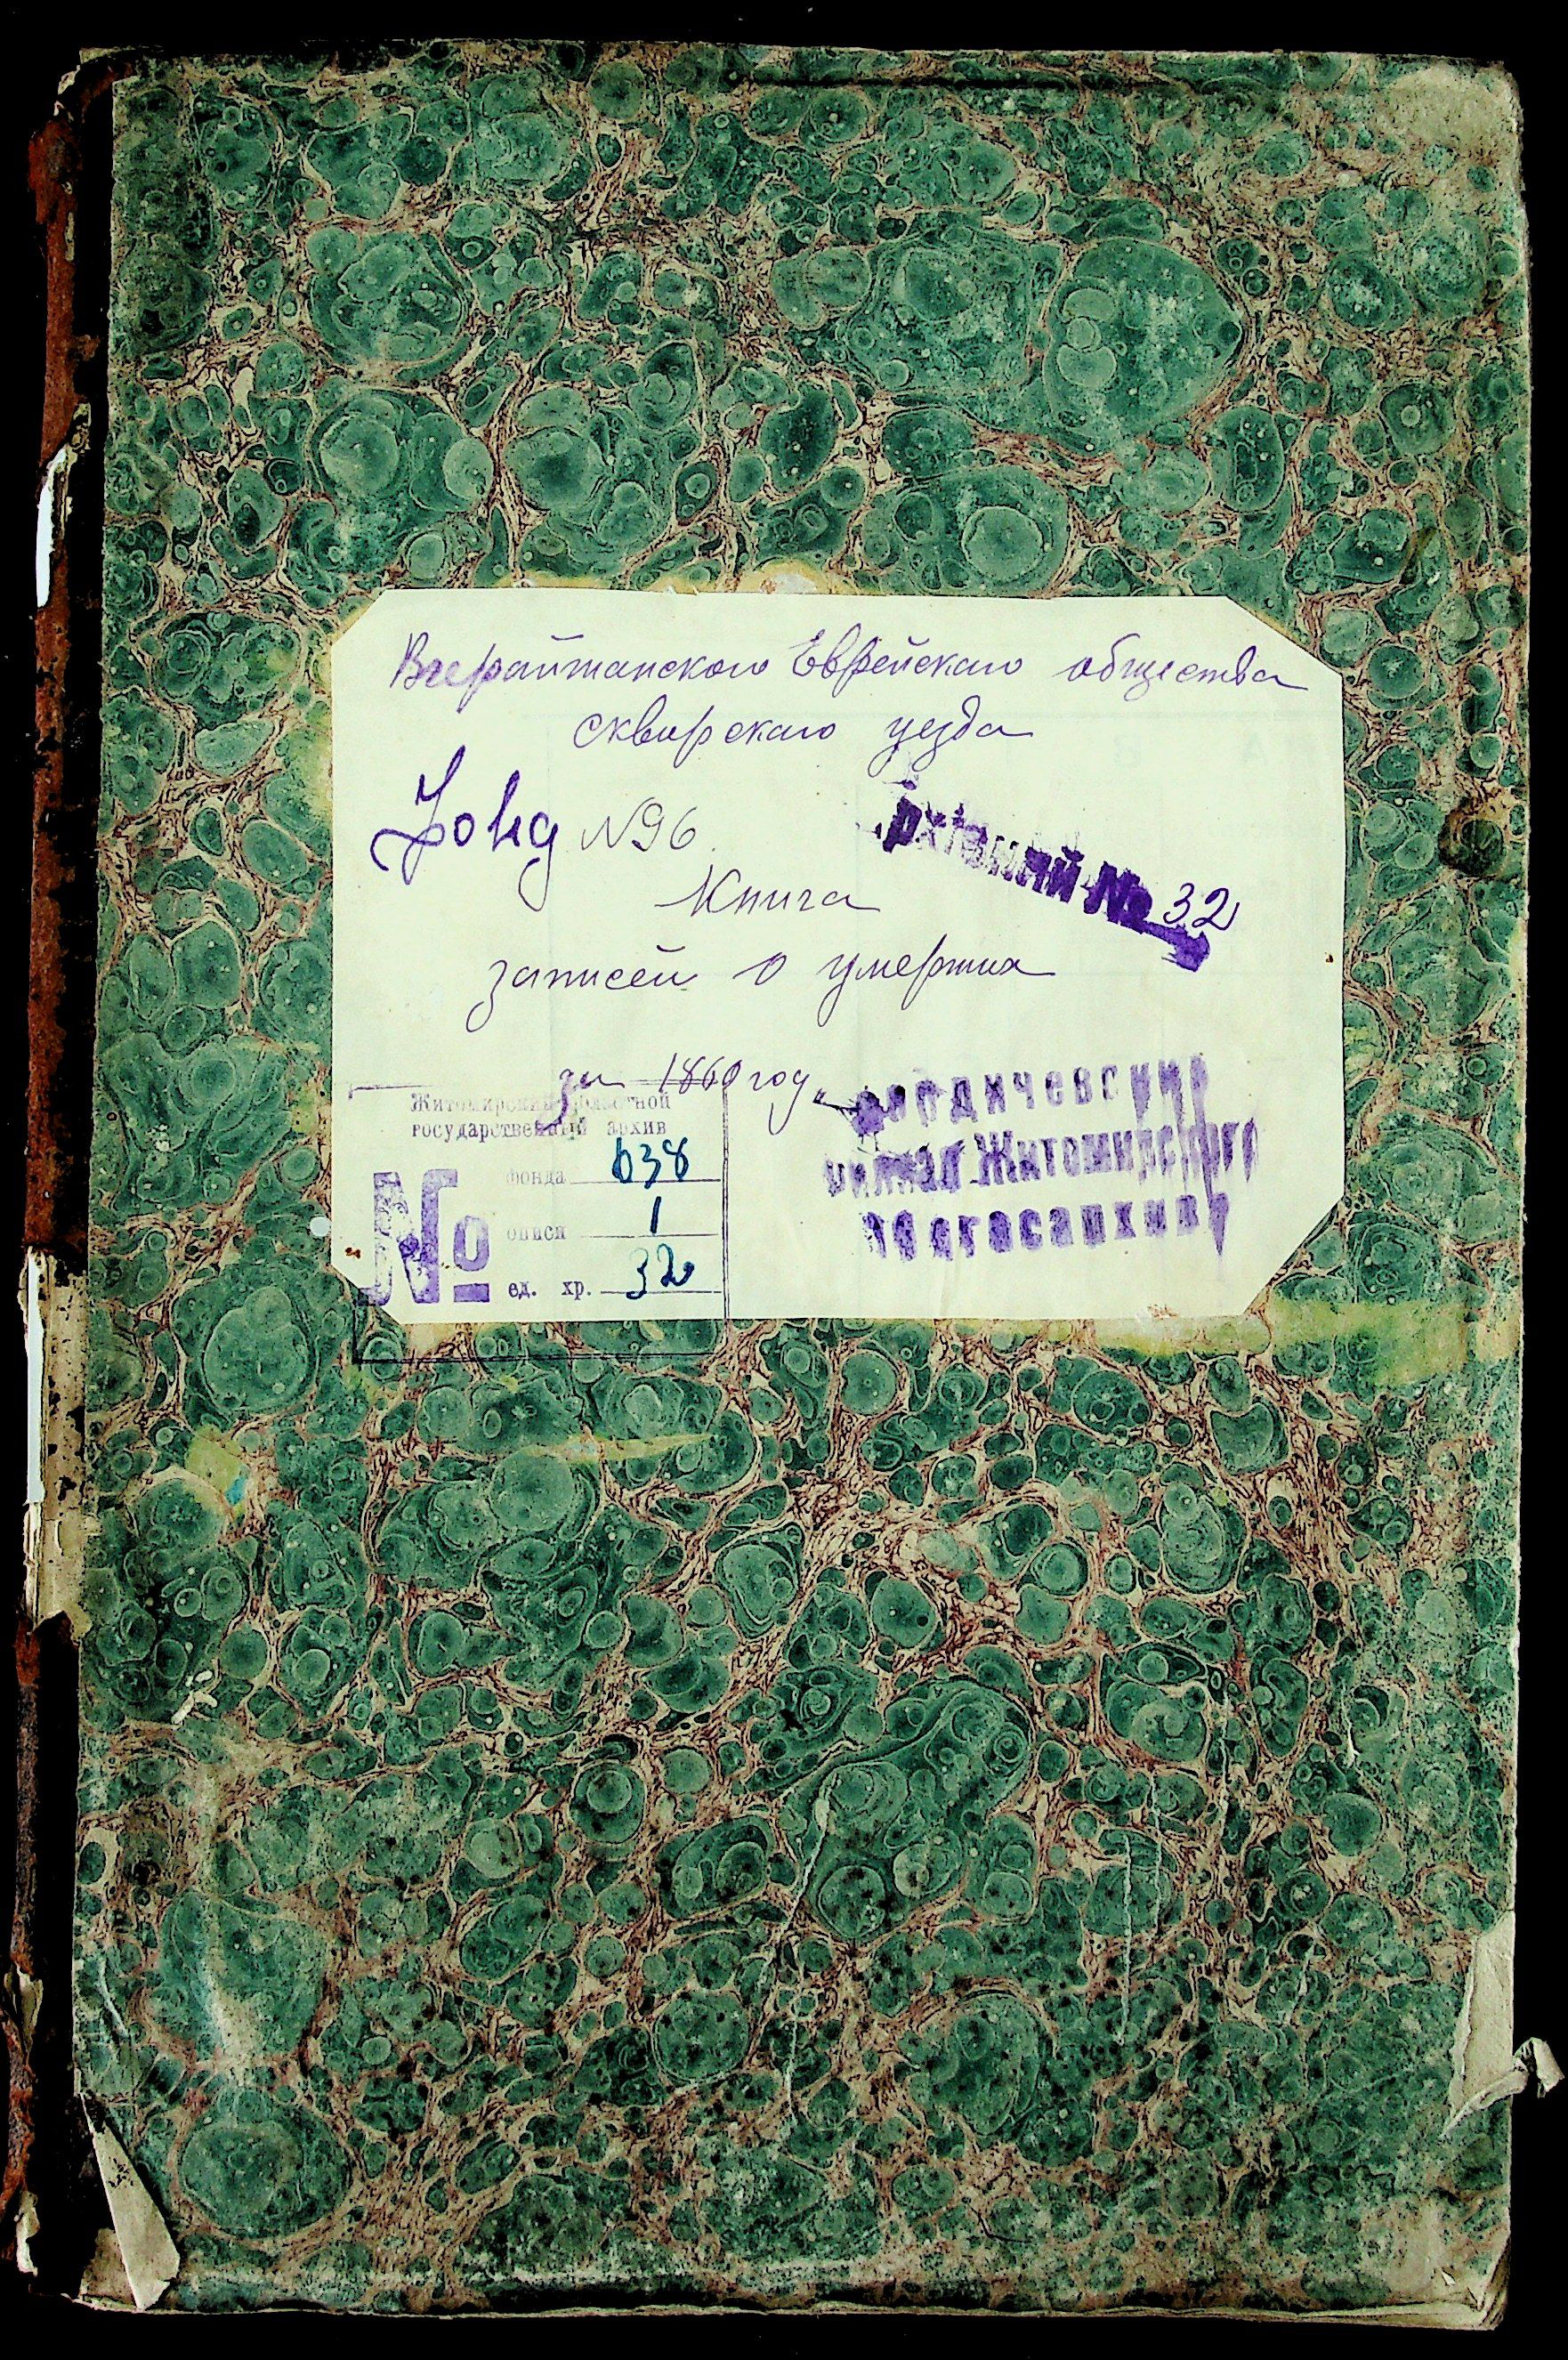 Еврейскаго общества
сквирскаго уезда
Фонд №96.
Архівний № 32
Книга
записей о умерших
за 1860 год
Житомирский областной
государственный архив
фонда 638
№ описи 1
ед. хр. 32
Бердичевский
филиал Житомирского
облгосархива